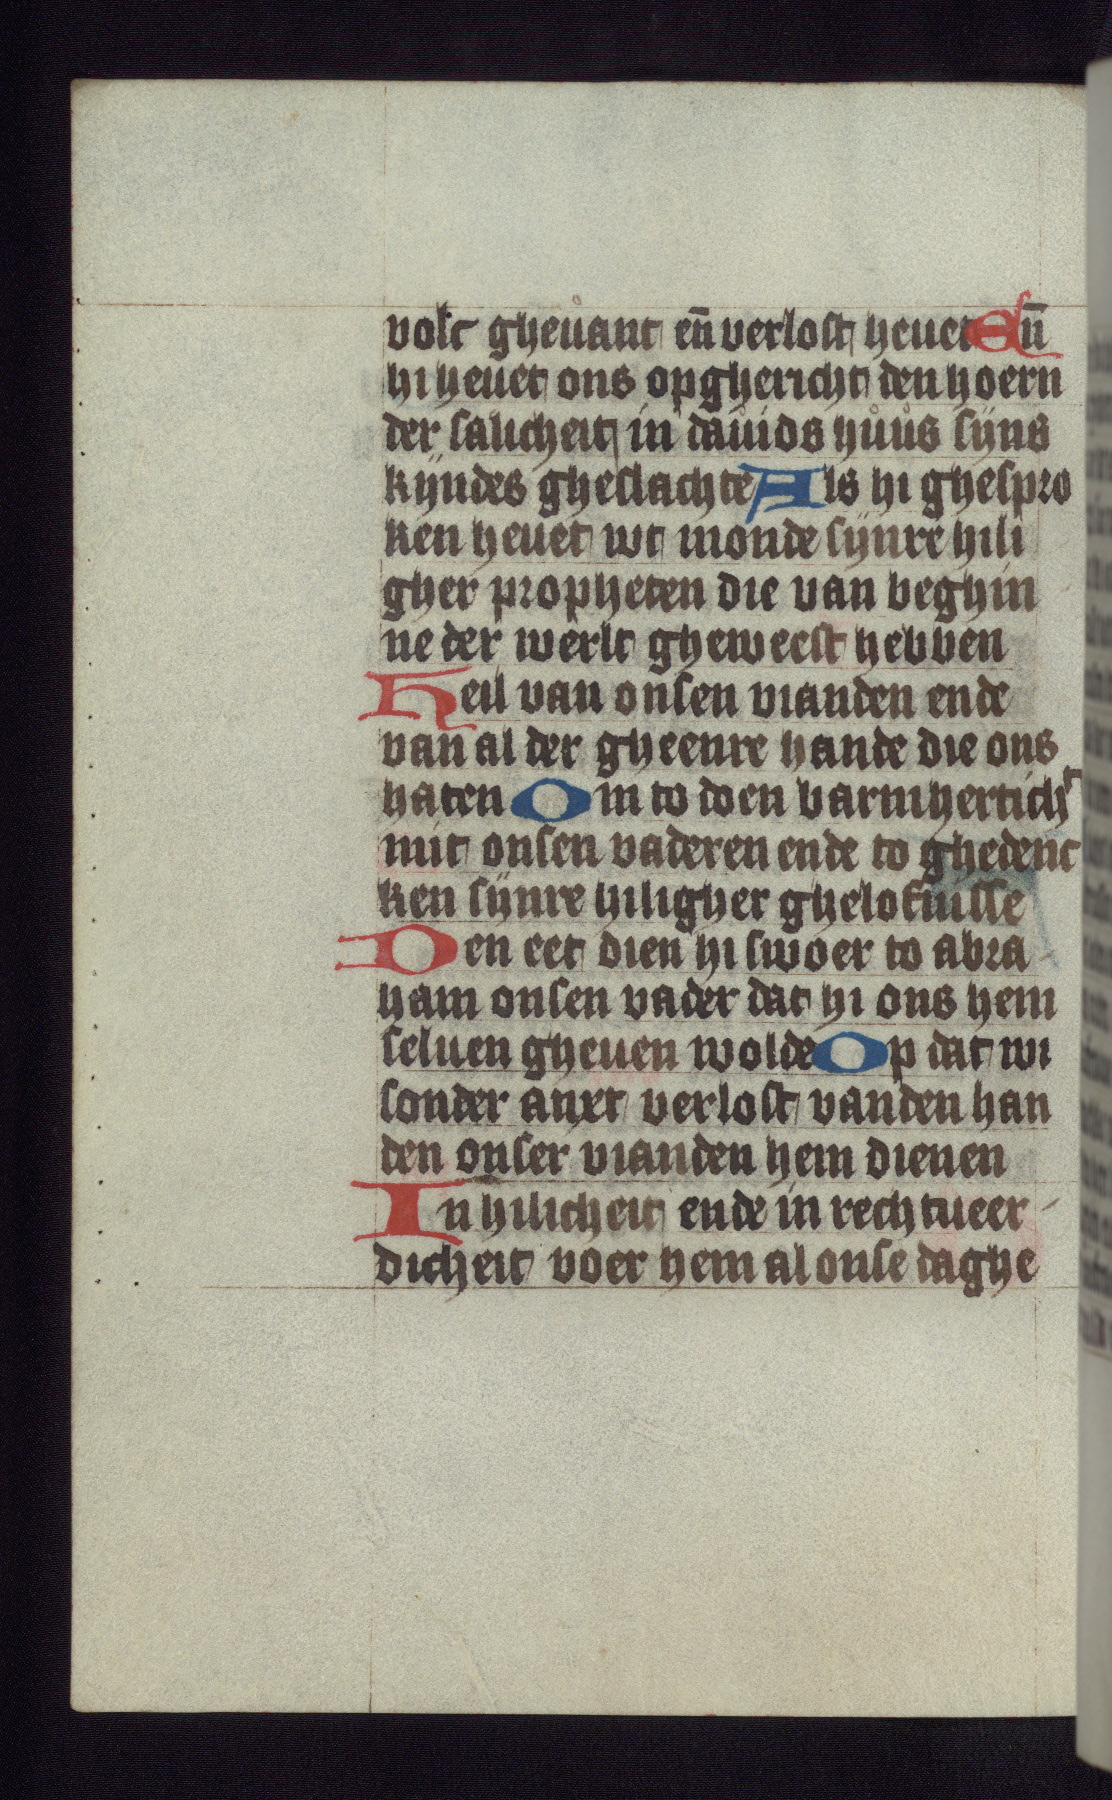 volc gheuant en̄ verlost heuet En̄
hi heuet ons opghericht den hoern
der salicheit in dauids huus sijns
kyndes gheslachte Als hi ghespro
ken heuet wt monde synre hili
gher propheten die van beghin
ne der werlt gheweest hebben
Heil van onsen vianden ende
van al der gheenre hande die ons
haten Om to doen barmhertich͛
mit onsen vaderen ende to ghedenc
ken synre hiligher ghelofnisse
Den eet dien hi swoer to abra
ham onsen vader dat hi ons hem
seluen gheuen wolde Op dat wi
sonder anxt verlost vanden han
den onser vianden hem dienen
In hilicheit ende in rechtueer
dicheit voer hem al onse daghe